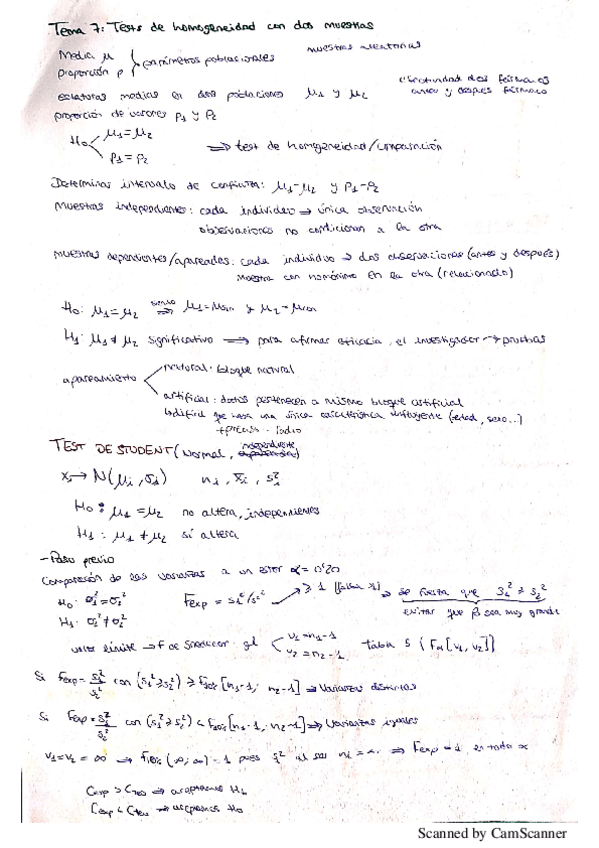 Tema 7: Tests de homogeneidad con dos muestras
Media μ
proporción p
parámetros poblacionales
muestras aleatorias
estaturas medias en dos poblaciones μ1 y μ2
efectividad dos fármacos
antes y después fármaco
proporción de varones p1 y p2
H0 μ1=μ2
p1=p2
⇒ test de homogeneidad/comparación
Determinar intervalo de confianza: μ1-μ2 y p1-p2
Muestras independientes: cada individuo → única observación
observaciones no condicionan a la otra
muestras dependientes/apareadas: cada individuo → dos observaciones (antes y después)
muestra con homónimo en la otra (relacionado)
H0: μ1=μ2 siendo ⇒ μ1=μsin y μ2=μcon
H1: μ1≠μ2 significativo ⇒ para afirmar eficacia, el investigador → pruebas
apareamiento
natural: bloque natural
artificial: datos pertenecen a mismo bloque artificial
difícil que haya una única característica influyente (edad, sexo...)
TEST DE STUDENT (Normal, independiente)
xi → N(μi, σi) ni, x̄i, si²
H0: μ1=μ2 no altera, independientes
H1: μ1≠μ2 sí altera
- Paso previo
Comparación de las varianzas a un error α=0'20
H0: σ1²=σ2²
H1: σ1²≠σ2²
Fexp = s1²/s2²
≥1 ⇒ se fuerza que s1² ≥ s2²
evitar que β sea muy grande
valor límite → F de Snedecor: gl
v1=n1-1
v2=n2-1
Tabla 5 {Fα[v1, v2]}
Si Fexp = s1²/s2² con (s1²≥s2²) ≥ [n1-1; n2-1] ⇒ Varianzas distintas
Si Fexp = s1²/s2² con (s1²≥s2²) < [n1-1, n2-1] ⇒ Varianzas iguales
v1=v2=∞ → (∞;∞)=1 pues ⇒ Fexp=1, en toda α
Cexp > → aceptamos H1
Cexp < → aceptamos H0
Scanned by CamScanner